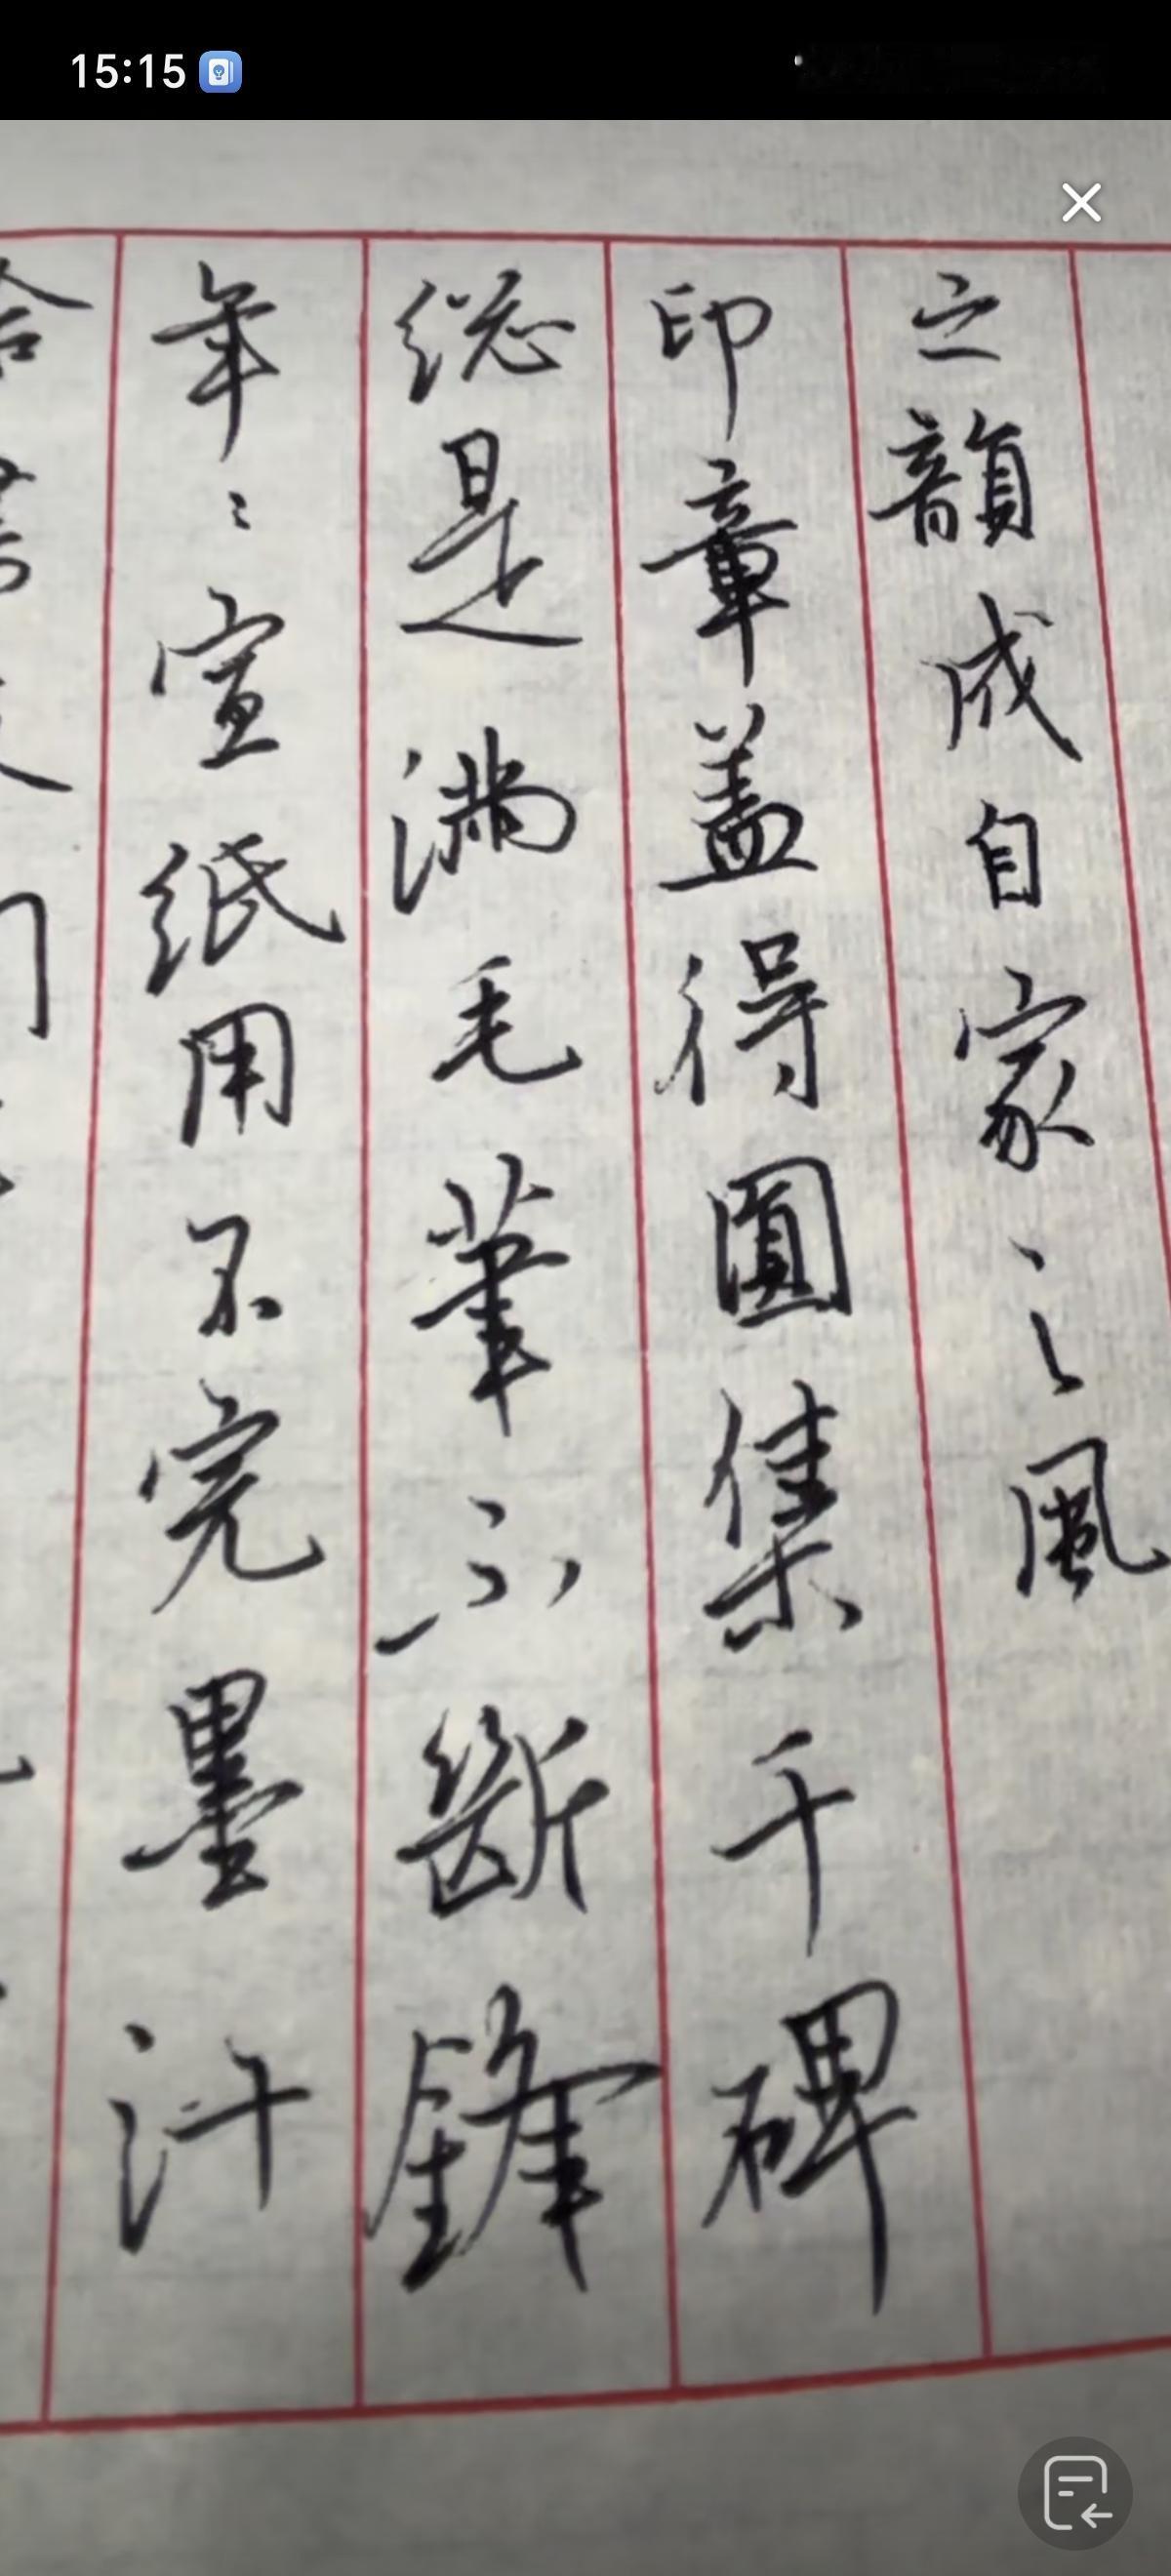 15:15
年〻宣紙用不完墨汁
総是滿毛筆不斷鋒
印章盖得圓集千碑
之韻成自家之風